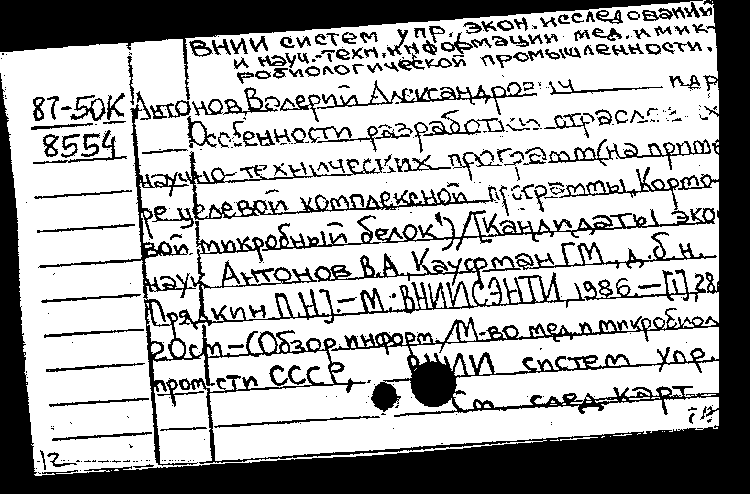 ВНИИ систем упр., экон. исследований
и науч.-техн. информации мед. и мик-
робиологической промышленности.
87-50К Антонов Валерий Александрович
8554 Особенности разработки отраслевых
научно-технических программ (на приме-
ре целевой комплексной программы "Кормо-
вой микробный белок") / [Кандидаты эко
наук Антонов В.А., Кауфман Г.М., д.б.н.
Прядкин П.Н]. – М.: ВНИИСЭНТИ, 1986. – [1], 28
20см. – (Обзор. информ. / М-во мед. и микробиол
пром-сти СССР, ВНИИ систем упр.
См. след. карт
12